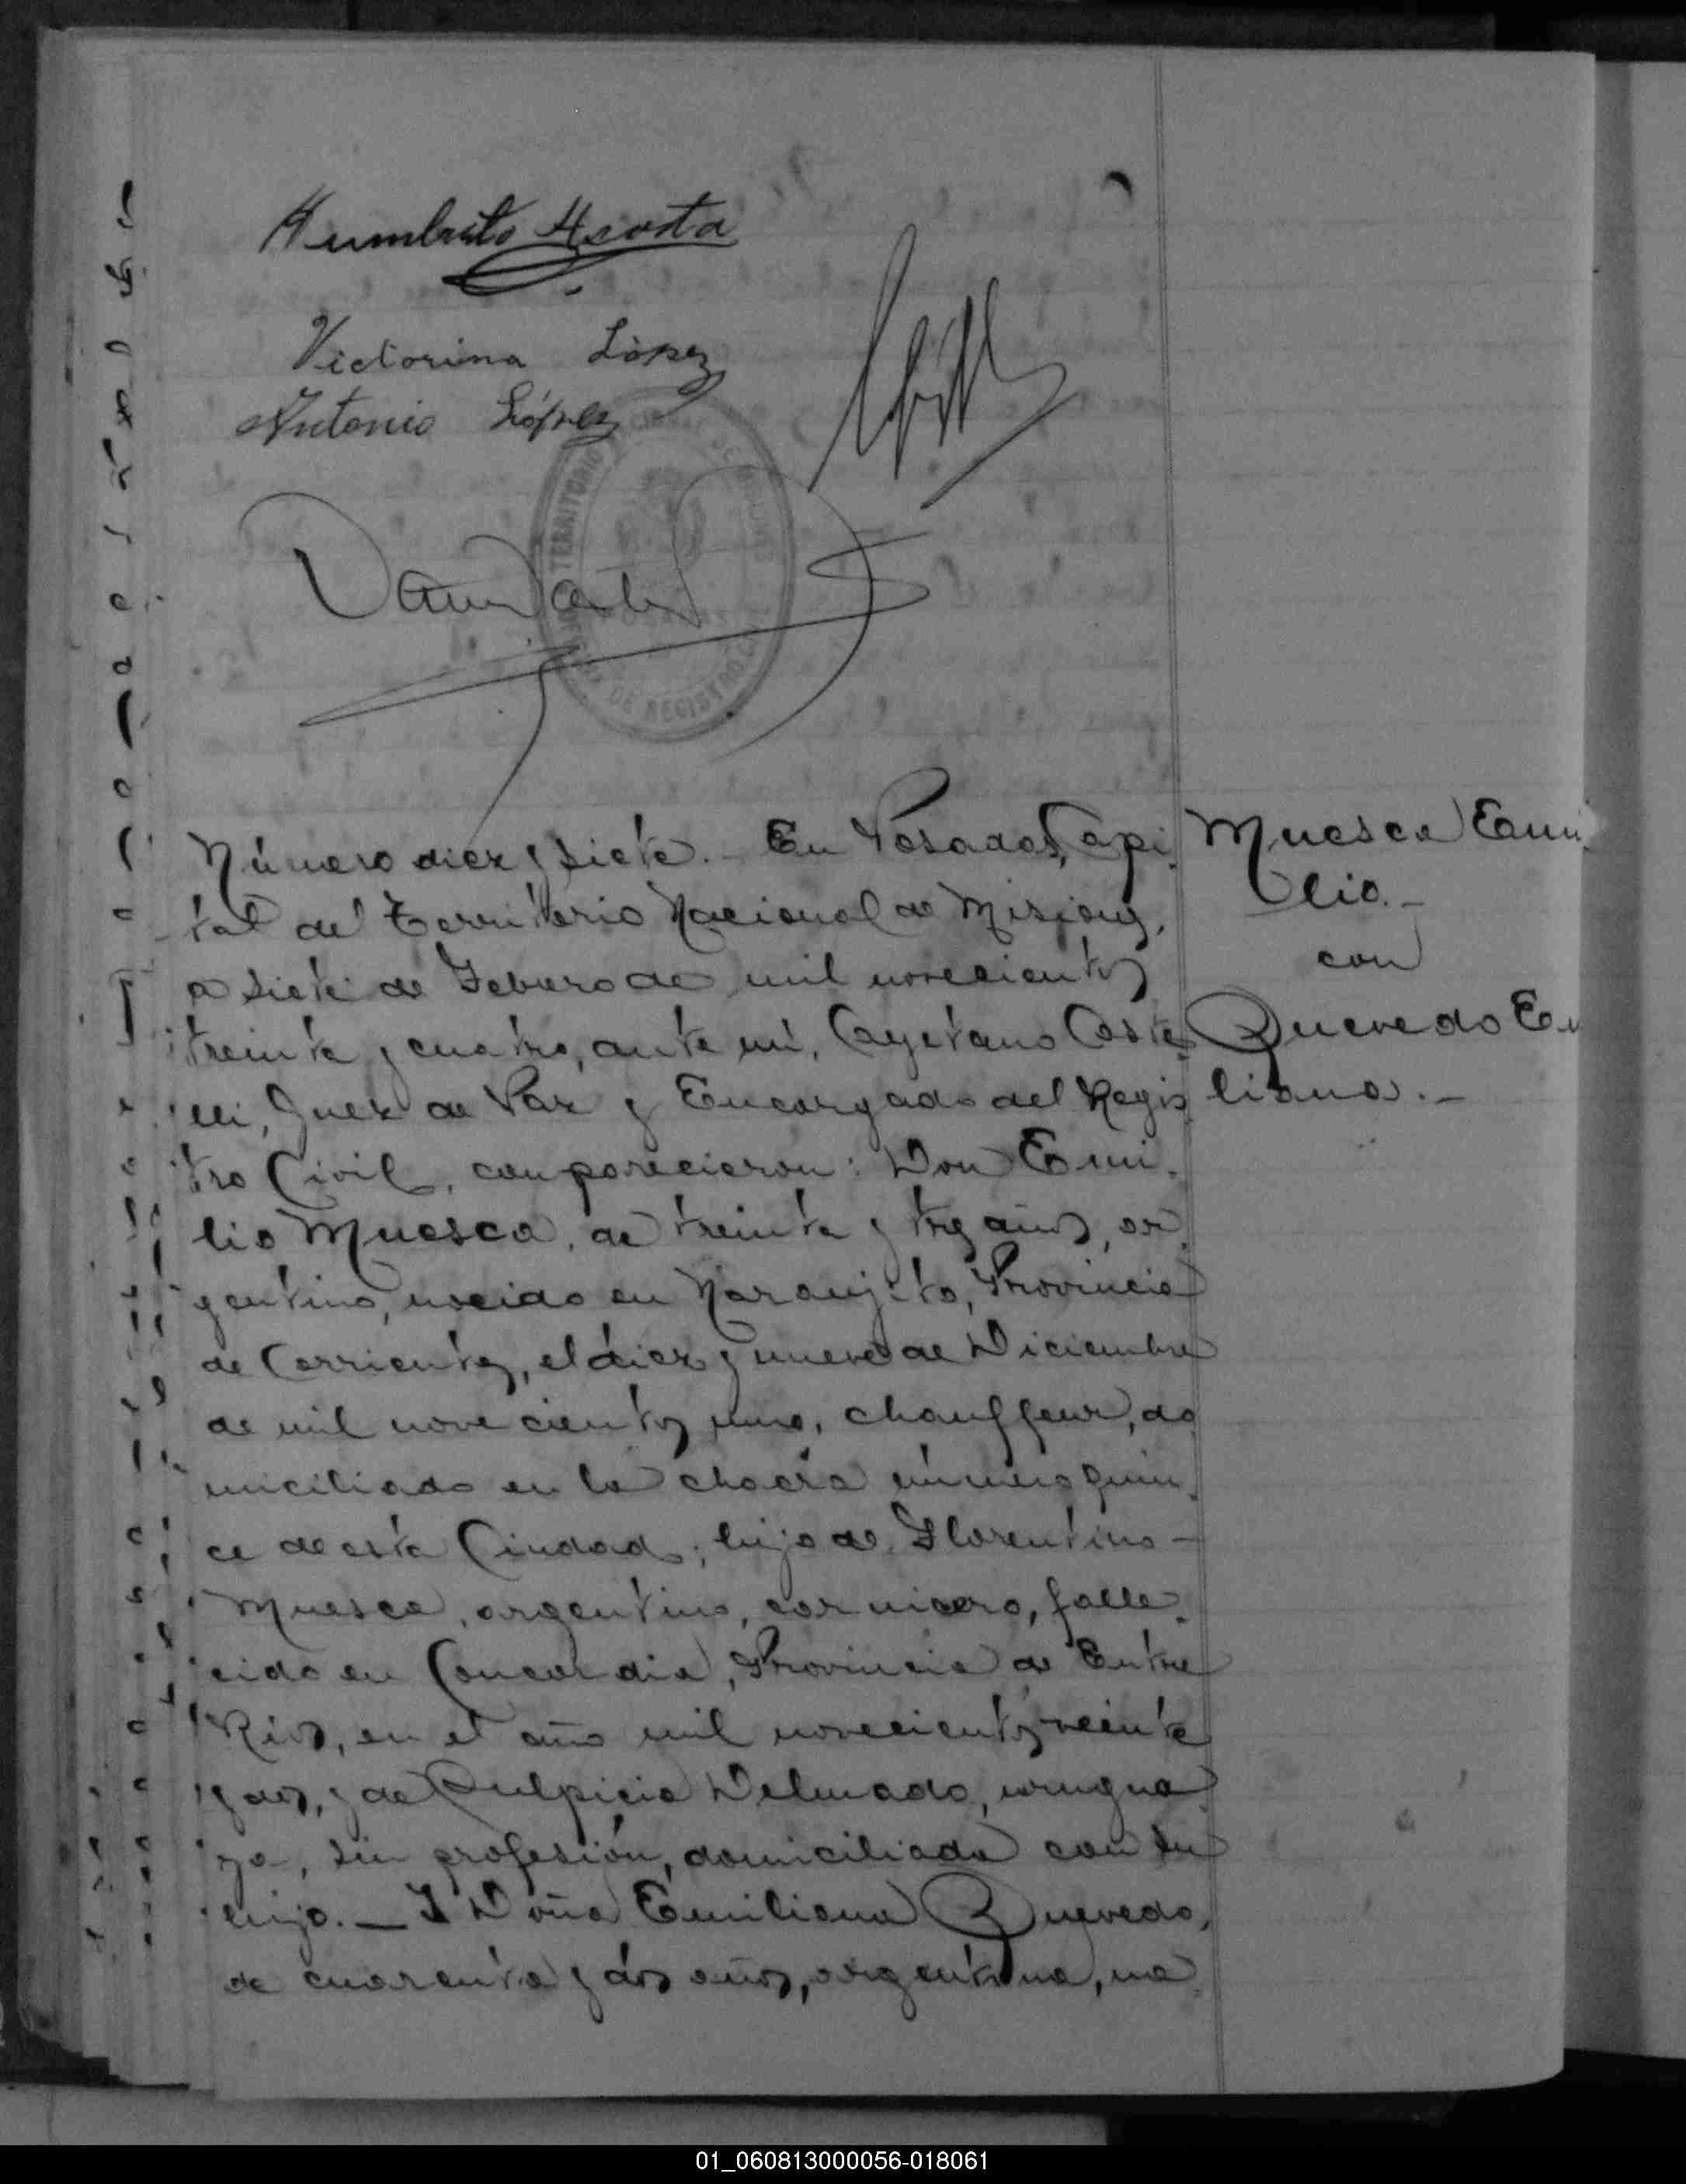 Humberto Acosta
Victorina López
Antonio López
TERRITORIO NACIONAL DE MISIONES
POSADAS
DE REGISTRO
Número diez y siete. - En Posadas, Capi
tal del Territorio Nacional de Misiones,
a siete de Febrero de mil novecientos
treinta y cuatro, ante mí, Cayetano Caste
lli, Juez de Paz y Encargado del Regis
tro Civil, comparecieron: Don Emi
lio Muesca, de treinta y tres años, ar
gentino, nacido en Naranjito, Provincia
de Corrientes, el diez y nueve de Diciembre
de mil novecientos uno, chauffeur, do
miciliado en la chacra número quin
ce de esta Ciudad; hijo de Florentino -
Muesca, argentino, carnicero, falle
cido en Concordia, Provincia de Entre
Ríos, en el año mil novecientos veinte
y dos, y de Sulpicia Delmado, urugua
ya, sin profesión, domiciliada con su
hijo. - Y Doña Emiliana Quevedo,
de cuarenta y dos años, argentina, na
Muesca Emi
lio. -
con
Quevedo Em
liana. -
01_060813000056-018061